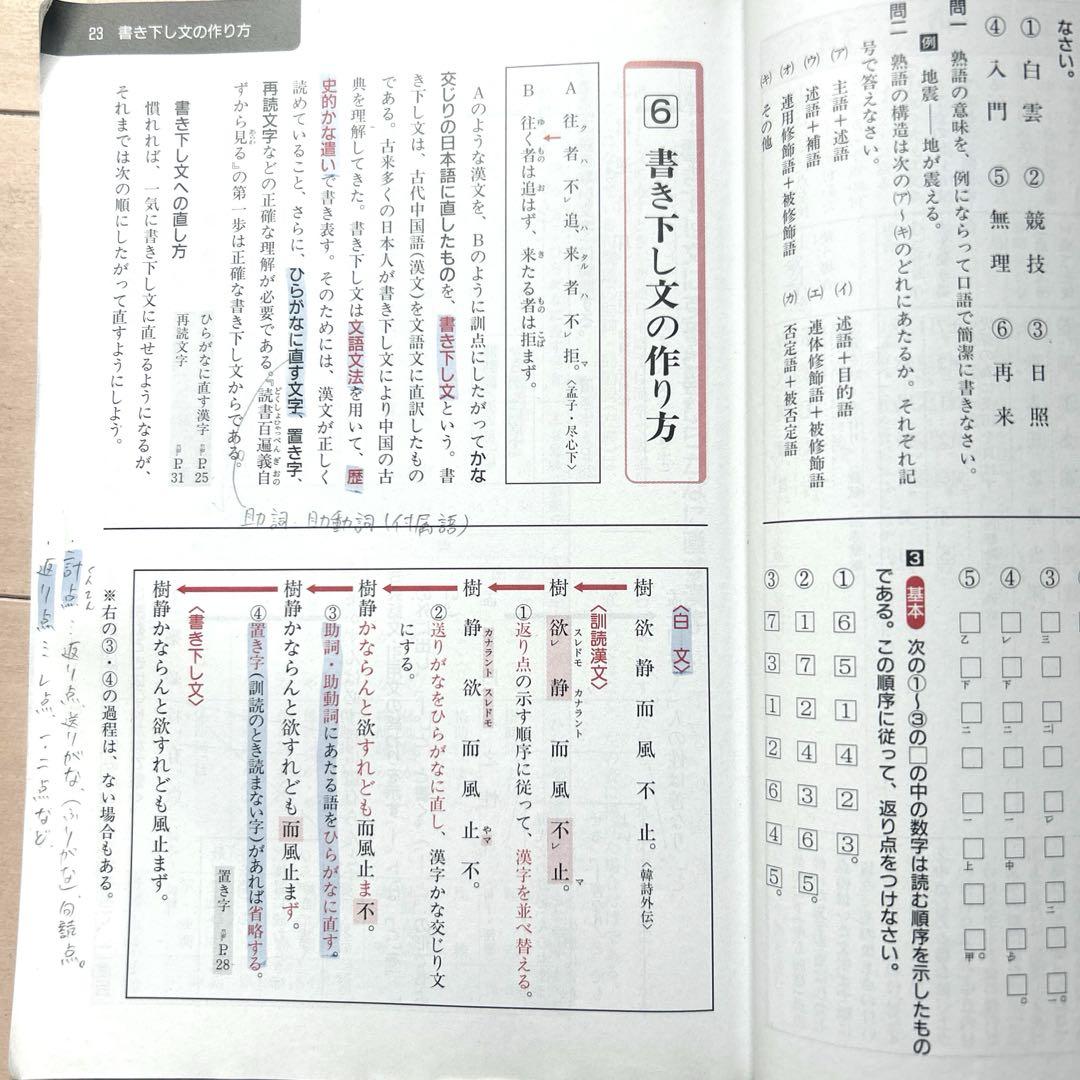 なさい。
①白雲 ②競技 ③日照
④入門 ⑤無理 ⑥再来
問一 熟語の意味を、例にならって口語で簡潔に書きなさい。
例 地震――地が震える。
問二 熟語の構造は次の㋐〜㋖のどれにあたるか。それぞれ記
号で答えなさい。
㋐ 主語+述語 ㋑ 述語+目的語
㋒ 述語+補語 ㋓ 連体修飾語+被修飾語
㋔ 連用修飾語+被修飾語 ㋕ 否定語+被否定語
㋖ その他
3 基本 次の①〜③の□の中の数字は読む順序を示したもの
である。この順序に従って、返り点をつけなさい。
① 6 5 1 4 2 3。
② 1 7 2 4 3 6 5。
③ 7 3 1 2 6 4 5。
③ □三 □ □二 □レ □ □二 □一。
④ □レ □下 □二 □一 □中 □上。
⑤ □乙 □下 □二 □一 □上 □甲。
23 書き下し文の作り方
6 書き下し文の作り方
A 往ク者ハ不レ追ハ、来タル者ハ不レ拒マ。〈孟子・尽心下〉
B 往く者は追はず、来たる者は拒まず。
ゆ もの お き もの こば
Aのような漢文を、Bのように訓点にしたがってかな
交じりの日本語に直したものを、書き下し文という。書
き下し文は、古代中国語(漢文)を文語文に直訳したもの
である。古来多くの日本人が書き下し文により中国の古
典を理解してきた。書き下し文は文語文法を用いて、歴
史的かな遣いで書き表す。そのためには、漢文が正しく
読めていること、さらに、ひらがなに直す文字、置き字、
再読文字などの正確な理解が必要である。『読書百遍義自
どくしょひゃっぺんぎおの
ずから見る』の第一歩は正確な書き下し文からである。
助詞 助動詞(付属語)
書き下し文への直し方
ひらがなに直す漢字 P.25
再読文字 P.31
慣れれば、一気に書き下し文に直せるようになるが、
それまでは次の順にしたがって直すようにしよう。
〈白 文〉
樹欲静而風不止。〈韓詩外伝〉
〈訓読漢文〉
樹欲スレドモレ静カナラント而風不レ止マ。
①返り点の示す順序に従って、漢字を並べ替える。
樹静カナラント欲スレドモ而風止ヤマ不。
②送りがなをひらがなに直し、漢字かな交じり文
にする。
樹静かならんと欲すれども而風止ま不。
③助詞・助動詞にあたる語をひらがなに直す。
樹静かならんと欲すれども而風止まず。
④置き字(訓読のとき読まない字)があれば省略する。
置き字 P.28
〈書き下し文〉
樹静かならんと欲すれども風止まず。
※右の③・④の過程は、ない場合もある。
くんてん
・訓点:返り点、送りがな、(ふりがな)、句読点。
・返り点:レ点、一・二点など